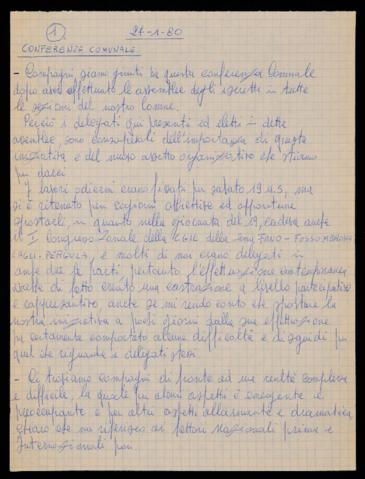 1
27-1-80
CONFERENZA COMUNALE
- Compagni siamo giunti a questa conferenza Comunale
dopo aver effettuato le assemblee degli iscritti in tutte
le sezioni del nostro Comune.
Perciò i delegati qui presenti ed eletti in dette
assemblee, sono consapevoli dell'importanza di questa
iniziativa e del nuovo assetto organizzativo che stiamo
per darci
I lavori odierni erano fissati per sabato 19 u.s., ma
si è ritenuto per ragioni obiettive ed opportune
spostarli, in quanto nella giornata del 19, cadeva anche
il I° Congresso Zonale della CGIL della zona FANO - FOSSOMBRONE
CAGLI - PERGOLA, e molti di noi erano delegati in
ambedue le parti pertanto l'effettuazione contemporanea
avrebbe di fatto creato una castrazione a livello partecipativo
e rappresentativo anche se mi rendo conto che spostare la
nostra iniziativa a pochi giorni dalla sua effettuazione
ha certamente comportato alcune difficoltà e disguidi per
quel che riguarda i delegati stessi.
- Ci troviamo compagni di fronte ad una realtà complessa
e difficile, la quale per alcuni aspetti è emergente e
preoccupante e per altri aspetti allarmante e drammatica
chiaro che mi riferisco ai settori Nazionali prima e
Internazionali poi